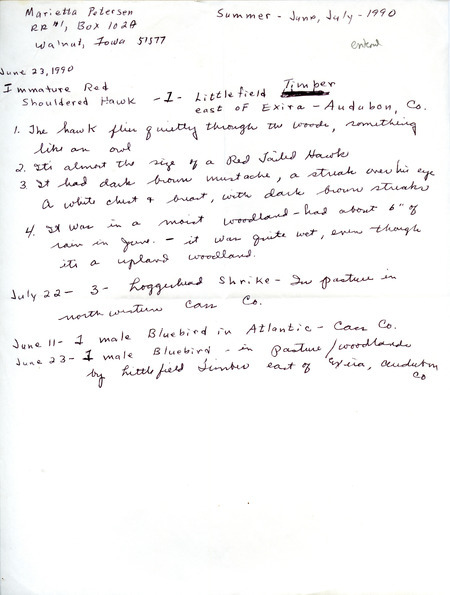 Marietta Petersen
Summer - June, July - 1990
RR#1, Box 102A
Walnut, Iowa 51577
entered
June 23, 1990
Immature Red
Shouldered Hawk - I - Littlefield Timber
east of Exira - Audubon, Co.
1. The hawk flies quietly through the woods, something
like an owl
2. Its almost the size of a Red Tailed Hawk
3. It had dark brown mustache, a streak over his eye
A white chest & breast, with dark brown streaks
4. It was in a moist woodland - had about 6" of
rain in June. - it was quite wet, even though
its a upland woodland.
July 22 - 3 - Loggerhead Shrike - In pasture in
northwestern Cass Co.
June 11 - I male Bluebird in Atlantic - Cass Co.
June 23 - I male Bluebird - in Pasture/woodlands
by Littlefield Timber east of Exira, Audubon
Co